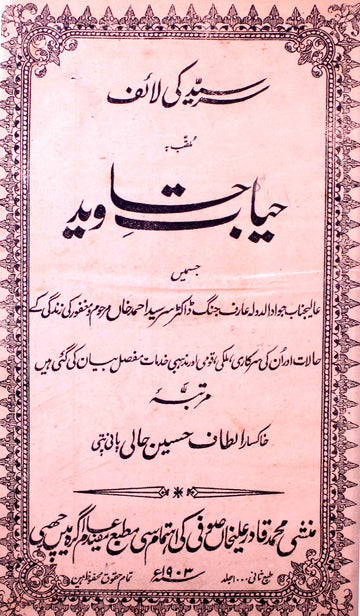 سرسید کی لائف
ملقب بہ
حیاتِ جاوید
جسمیں
عالیجناب جوادالدولہ عارف جنگ ڈاکٹر سر سید احمد خاں مرحوم و مغفور کی زندگی کے
حالات اور اُن کی سرکاری، ملکی، قومی اور مذہبی خدمات مفصل بیان کی گئی ہیں
مرتبہٗ
خاکسار الطاف حسین حالی پانی پتی
منشی محمد قادر علیخاں صوفی کے اہتمام سی مطبع مفید عام آگرہ میں چھپی
طبع ثانی ۱۰۰۰ جلد
سنہ ۱۹۰۳ء
تمام حقوق محفوظ ہیں